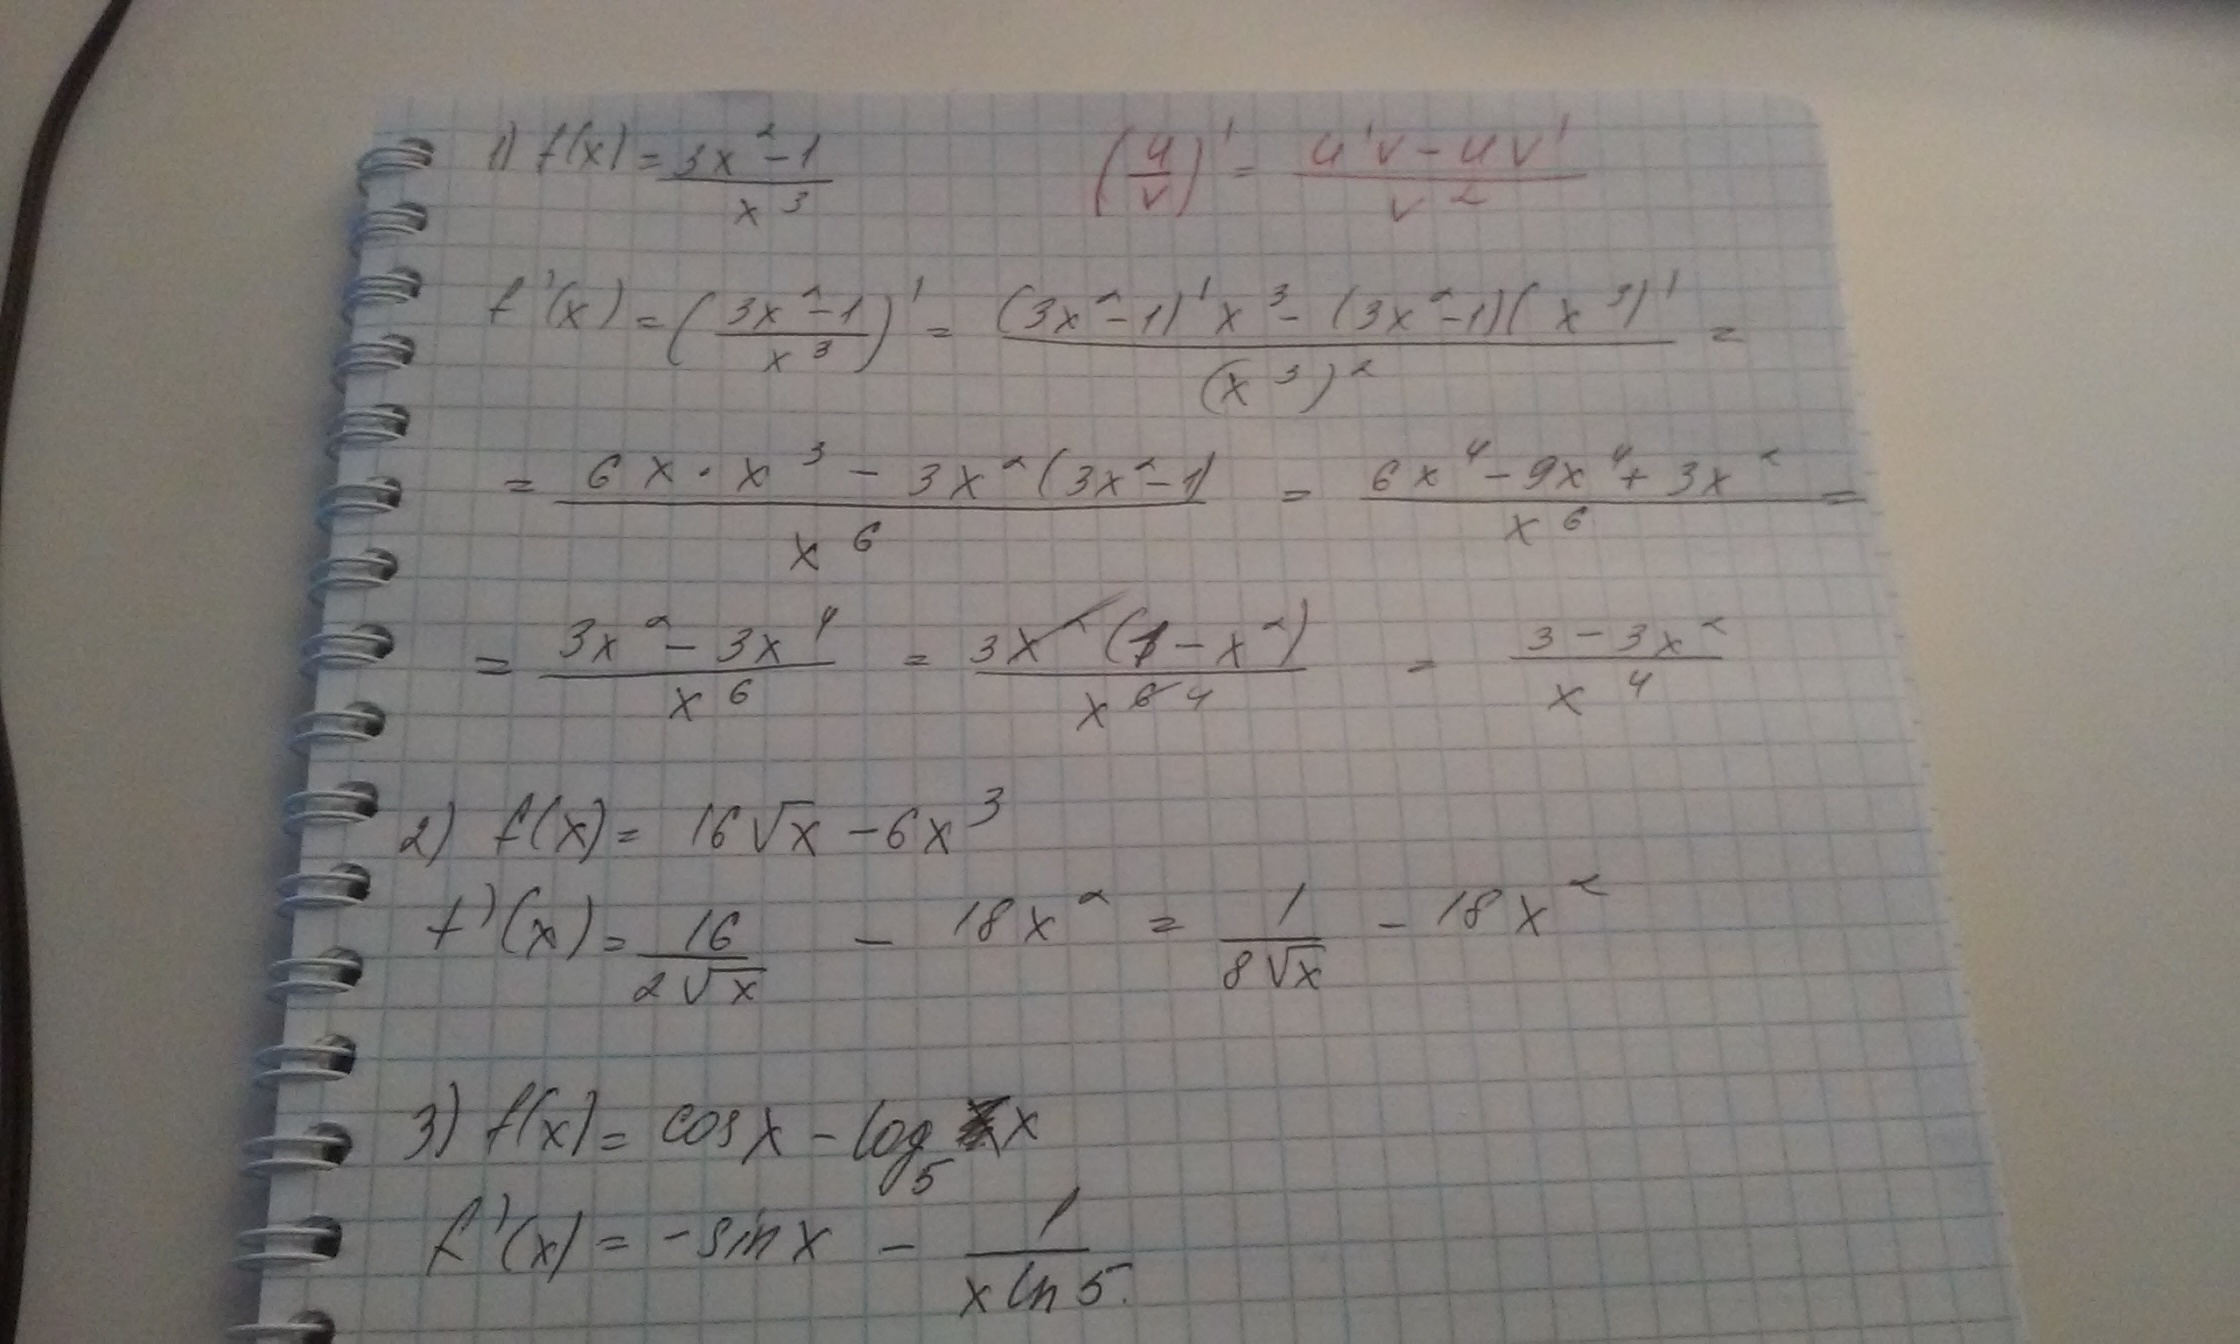 1) f(x) = (3x² - 1)/x³    (u/v)' = (u'v - uv')/v²
f'(x) = ((3x² - 1)/x³)' = ((3x² - 1)'x³ - (3x² - 1)(x³)')/(x³)² =
= (6x · x³ - 3x²(3x² - 1))/x⁶ = (6x⁴ - 9x⁴ + 3x²)/x⁶ =
= (3x² - 3x⁴)/x⁶ = 3x²(1 - x²)/x⁶ ⁴ = (3 - 3x²)/x⁴
2) f(x) = 16√x - 6x³
f'(x) = 16/(2√x) - 18x² = 1/(8√x) - 18x²
3) f(x) = cos x - log₅ x
f'(x) = -sin x - 1/(x ln 5).